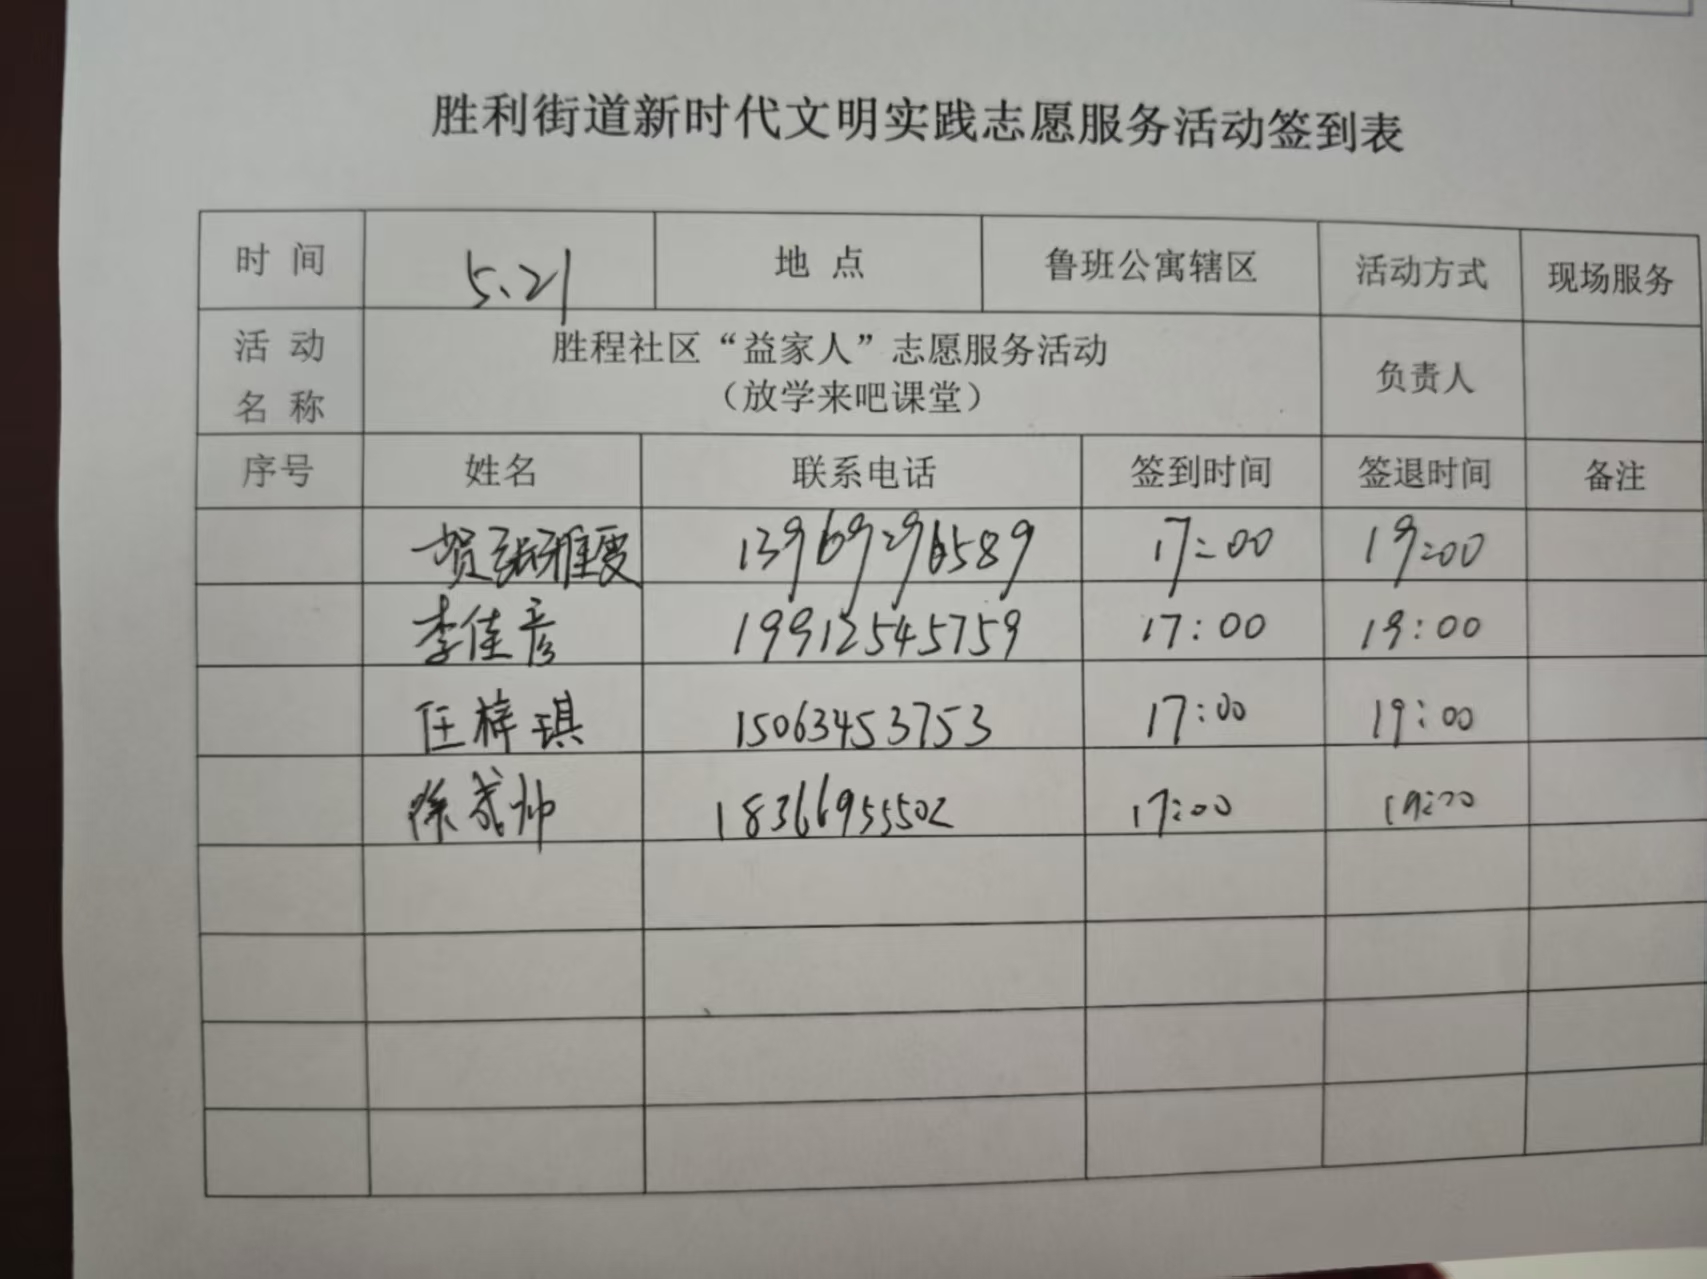 胜利街道新时代文明实践志愿服务活动签到表
时 间 5、21 地 点 鲁班公寓辖区 活动方式 现场服务
活 动 名 称 胜程社区“益家人”志愿服务活动
（放学来吧课堂） 负责人
序号 姓名 联系电话 签到时间 签退时间 备注
贺 雅雯 13969296589 17:00 19:00
李佳彦 19912545759 17:00 19:00
任梓琪 15063453753 17:00 19:00
徐 帅 18366955502 17:00 19:00